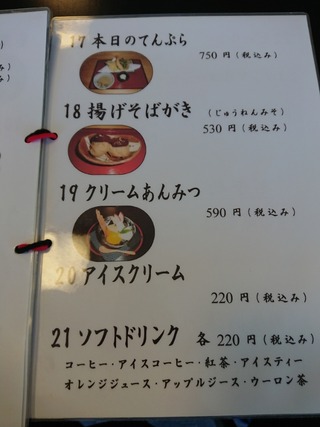 17 本日のてんぷら
750 円（税込み）
18 揚げそばがき （じゅうねんみそ）
530 円（税込み）
19 クリームあんみつ
590 円（税込み）
20 アイスクリーム
220 円（税込み）
21 ソフトドリンク 各 220 円（税込み）
コーヒー・アイスコーヒー・紅茶・アイスティー
オレンジジュース・アップルジース・ウーロン茶